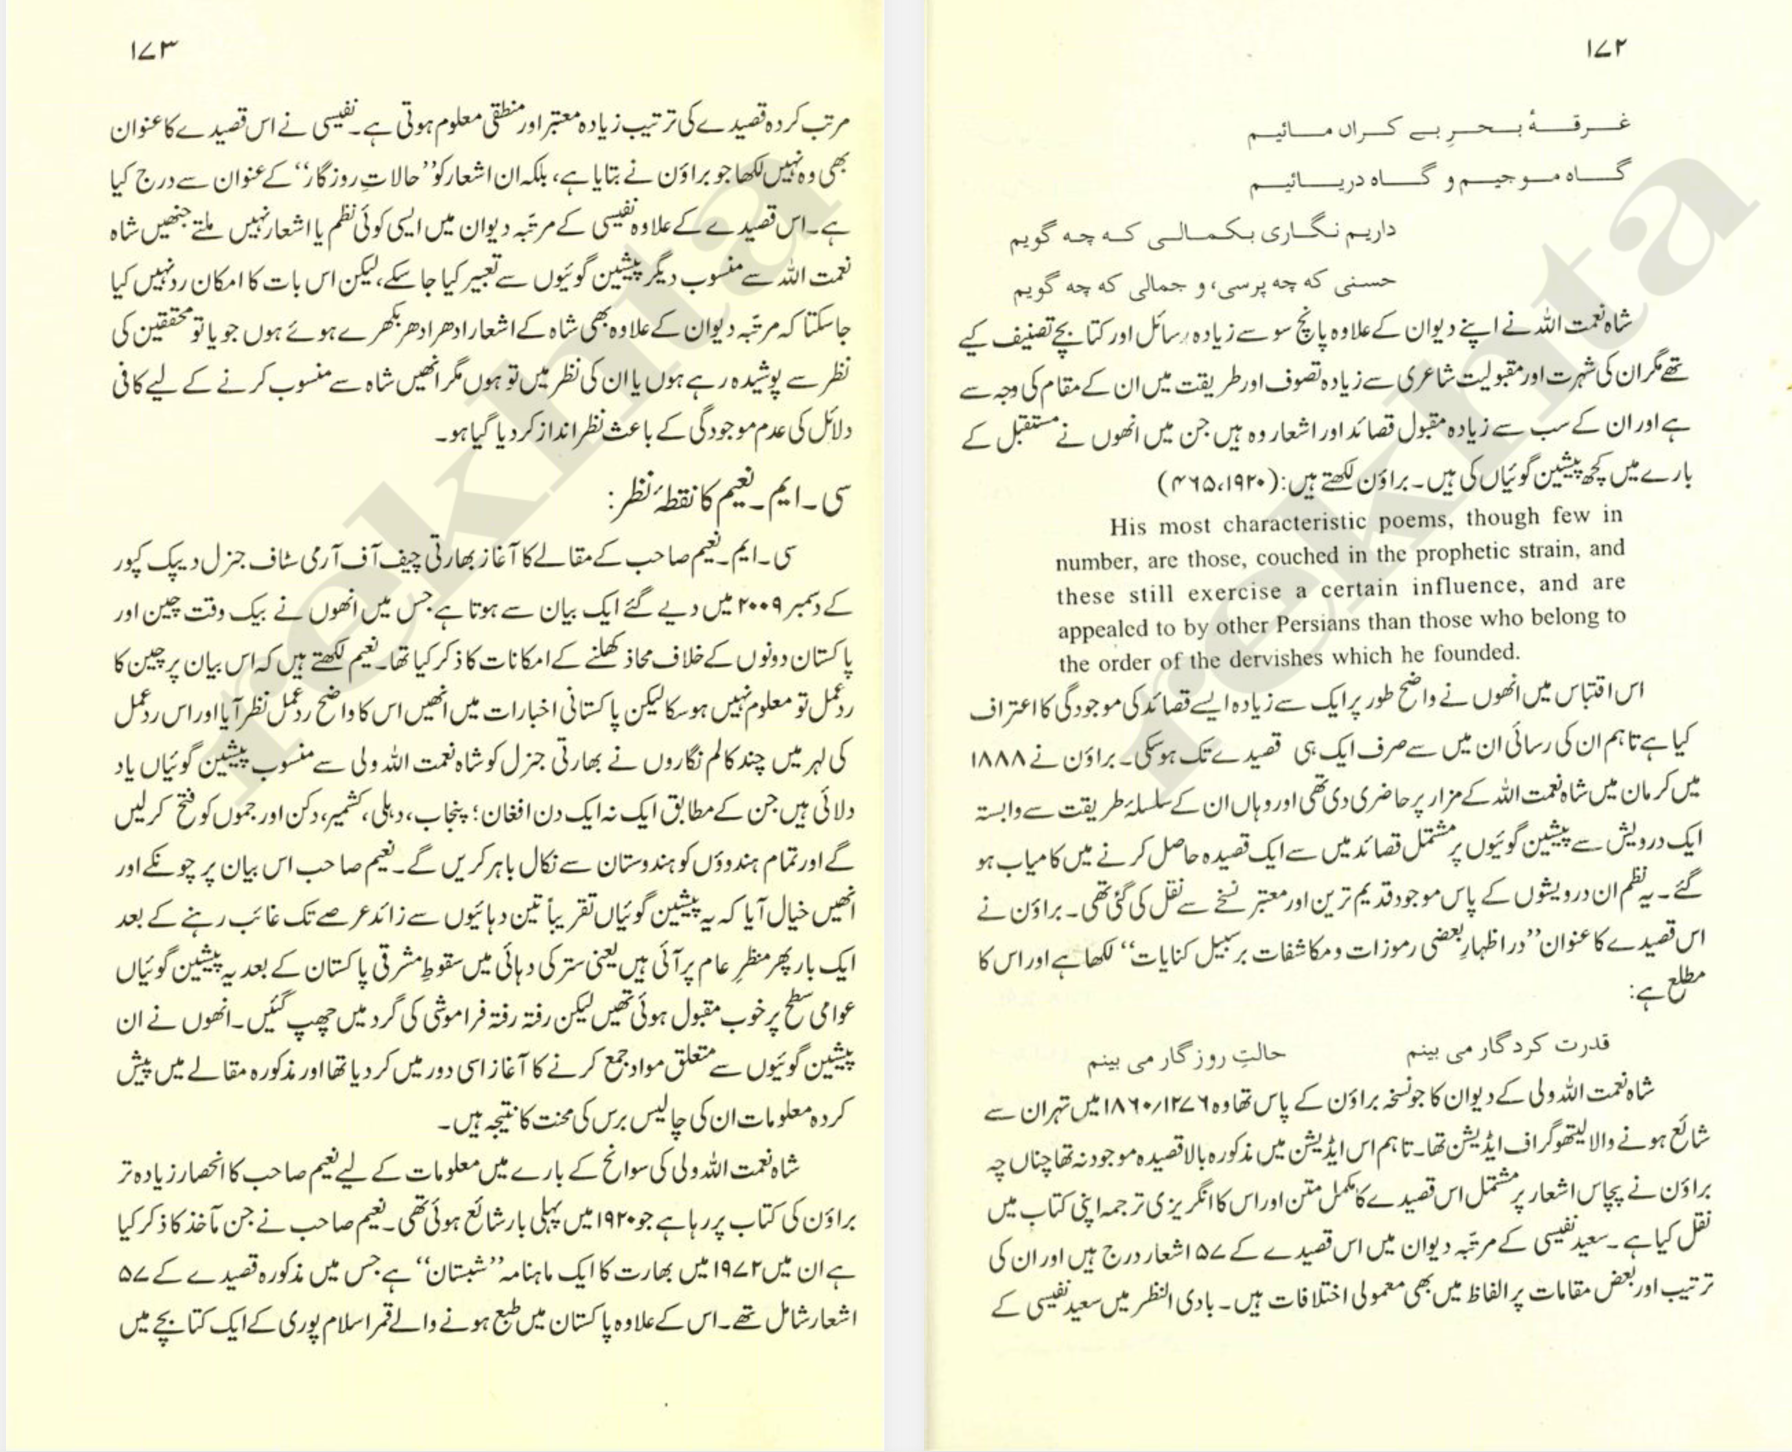 ۱۷۲
غرقۂ بحرِ بے کراں مائیم
گاہ موجیم و گاہ دریائیم
داریم نگاری بکمالی کہ چہ گویم
حسنی کہ چہ پرسی، و جمالی کہ چہ گویم
شاہ نعمت اللہ نے اپنے دیوان کے علاوہ پانچ سو سے زیادہ رسائل اور کتابچے تصنیف کیے
تھے مگر ان کی شہرت اور مقبولیت شاعری سے زیادہ تصوف اور طریقت میں ان کے مقام کی وجہ سے
ہے اور ان کے سب سے زیادہ مقبول قصائد اور اشعار وہ ہیں جن میں انھوں نے مستقبل کے
بارے میں کچھ پیشین گوئیاں کی ہیں۔ براؤن لکھتے ہیں: (۱۹۲۰، ۴۶۵)
His most characteristic poems, though few in
number, are those, couched in the prophetic strain, and
these still exercise a certain influence, and are
appealed to by other Persians than those who belong to
the order of the dervishes which he founded.
اس اقتباس میں انھوں نے واضح طور پر ایک سے زیادہ ایسے قصائد کی موجودگی کا اعتراف
کیا ہے تاہم ان کی رسائی ان میں سے صرف ایک ہی قصیدے تک ہوسکی۔ براؤن نے ۱۸۸۸
میں کرمان میں شاہ نعمت اللہ کے مزار پر حاضری دی تھی اور وہاں ان کے سلسلۂ طریقت سے وابستہ
ایک درویش سے پیشین گوئیوں پر مشتمل قصائد میں سے ایک قصیدہ حاصل کرنے میں کامیاب ہو
گئے۔ یہ نظم ان درویشوں کے پاس موجود قدیم ترین اور معتبر نسخے سے نقل کی گئی تھی۔ براؤن نے
اس قصیدے کا عنوان ’’در اظہارِ بعضی رموزات و مکاشفات بر سبیل کنایات‘‘ لکھا ہے اور اس کا
مطلع ہے:
قدرت کردگار می بینم حالتِ روزگار می بینم
شاہ نعمت اللہ ولی کے دیوان کا جو نسخہ براؤن کے پاس تھا وہ ۱۲۷۶/۱۸۶۰ میں تہران سے
شائع ہونے والا لیتھوگراف ایڈیشن تھا۔ تاہم اس ایڈیشن میں مذکورہ بالا قصیدہ موجود نہ تھا چناں چہ
براؤن نے پچاس اشعار پر مشتمل اس قصیدے کا مکمل متن اور اس کا انگریزی ترجمہ اپنی کتاب میں
نقل کیا ہے۔ سعید نفیسی کے مرتبہ دیوان میں اس قصیدے کے ۵۷ اشعار درج ہیں اور ان کی
ترتیب اور بعض مقامات پر الفاظ میں بھی معمولی اختلافات ہیں۔ بادی النظر میں سعید نفیسی کے
۱۷۳
مرتب کردہ قصیدے کی ترتیب زیادہ معتبر اور منطقی معلوم ہوتی ہے۔ نفیسی نے اس قصیدے کا عنوان
بھی وہ نہیں لکھا جو براؤن نے بتایا ہے، بلکہ ان اشعار کو ’’حالاتِ روزگار‘‘ کے عنوان سے درج کیا
ہے۔ اس قصیدے کے علاوہ نفیسی کے مرتبہ دیوان میں ایسی کوئی نظم یا اشعار نہیں ملتے جنھیں شاہ
نعمت اللہ سے منسوب دیگر پیشین گوئیوں سے تعبیر کیا جاسکے، لیکن اس بات کا امکان رد نہیں کیا
جاسکتا کہ مرتّبہ دیوان کے علاوہ بھی شاہ کے اشعار ادھر ادھر بکھرے ہوئے ہوں جو یا تو محققین کی
نظر سے پوشیدہ رہے ہوں یا ان کی نظر میں تو ہوں مگر انھیں شاہ سے منسوب کرنے کے لیے کافی
دلائل کی عدم موجودگی کے باعث نظر انداز کر دیا گیا ہو۔
سی۔ ایم۔ نعیم کا نقطۂ نظر:
سی۔ ایم۔ نعیم صاحب کے مقالے کا آغاز بھارتی چیف آف آرمی سٹاف جنرل دیپک کپور
کے دسمبر ۲۰۰۹ میں دیے گئے ایک بیان سے ہوتا ہے جس میں انھوں نے بیک وقت چین اور
پاکستان دونوں کے خلاف محاذ کھلنے کے امکانات کا ذکر کیا تھا۔ نعیم لکھتے ہیں کہ اس بیان پر چین کا
ردعمل تو معلوم نہیں ہوسکا لیکن پاکستانی اخبارات میں انھیں اس کا واضح ردعمل نظر آیا اور اس ردعمل
کی لہر میں چند کالم نگاروں نے بھارتی جنرل کو شاہ نعمت اللہ ولی سے منسوب پیشین گوئیاں یاد
دلائی ہیں جن کے مطابق ایک نہ ایک دن افغان؛ پنجاب، دہلی، کشمیر، دکن اور جموں کو فتح کرلیں
گے اور تمام ہندوؤں کو ہندوستان سے نکال باہر کریں گے۔ نعیم صاحب اس بیان پر چونکے اور
انھیں خیال آیا کہ یہ پیشین گوئیاں تقریباً تین دہائیوں سے زائد عرصے تک غائب رہنے کے بعد
ایک بار پھر منظرِ عام پر آئی ہیں یعنی ستر کی دہائی میں سقوطِ مشرقی پاکستان کے بعد یہ پیشین گوئیاں
عوامی سطح پر خوب مقبول ہوئی تھیں لیکن رفتہ رفتہ فراموشی کی گرد میں چھپ گئیں۔ انھوں نے ان
پیشین گوئیوں سے متعلق مواد جمع کرنے کا آغاز اسی دور میں کر دیا تھا اور مذکورہ مقالے میں پیش
کردہ معلومات ان کی چالیس برس کی محنت کا نتیجہ ہیں۔
شاہ نعمت اللہ ولی کی سوانح کے بارے میں معلومات کے لیے نعیم صاحب کا انحصار زیادہ تر
براؤن کی کتاب پر رہا ہے جو ۱۹۲۰ میں پہلی بار شائع ہوئی تھی۔ نعیم صاحب نے جن مآخذ کا ذکر کیا
ہے ان میں ۱۹۷۲ میں بھارت کا ایک ماہنامہ ’’شبستان‘‘ ہے جس میں مذکورہ قصیدے کے ۵۷
اشعار شامل تھے۔ اس کے علاوہ پاکستان میں طبع ہونے والے قمر اسلام پوری کے ایک کتابچے میں
rekhta
rekhta